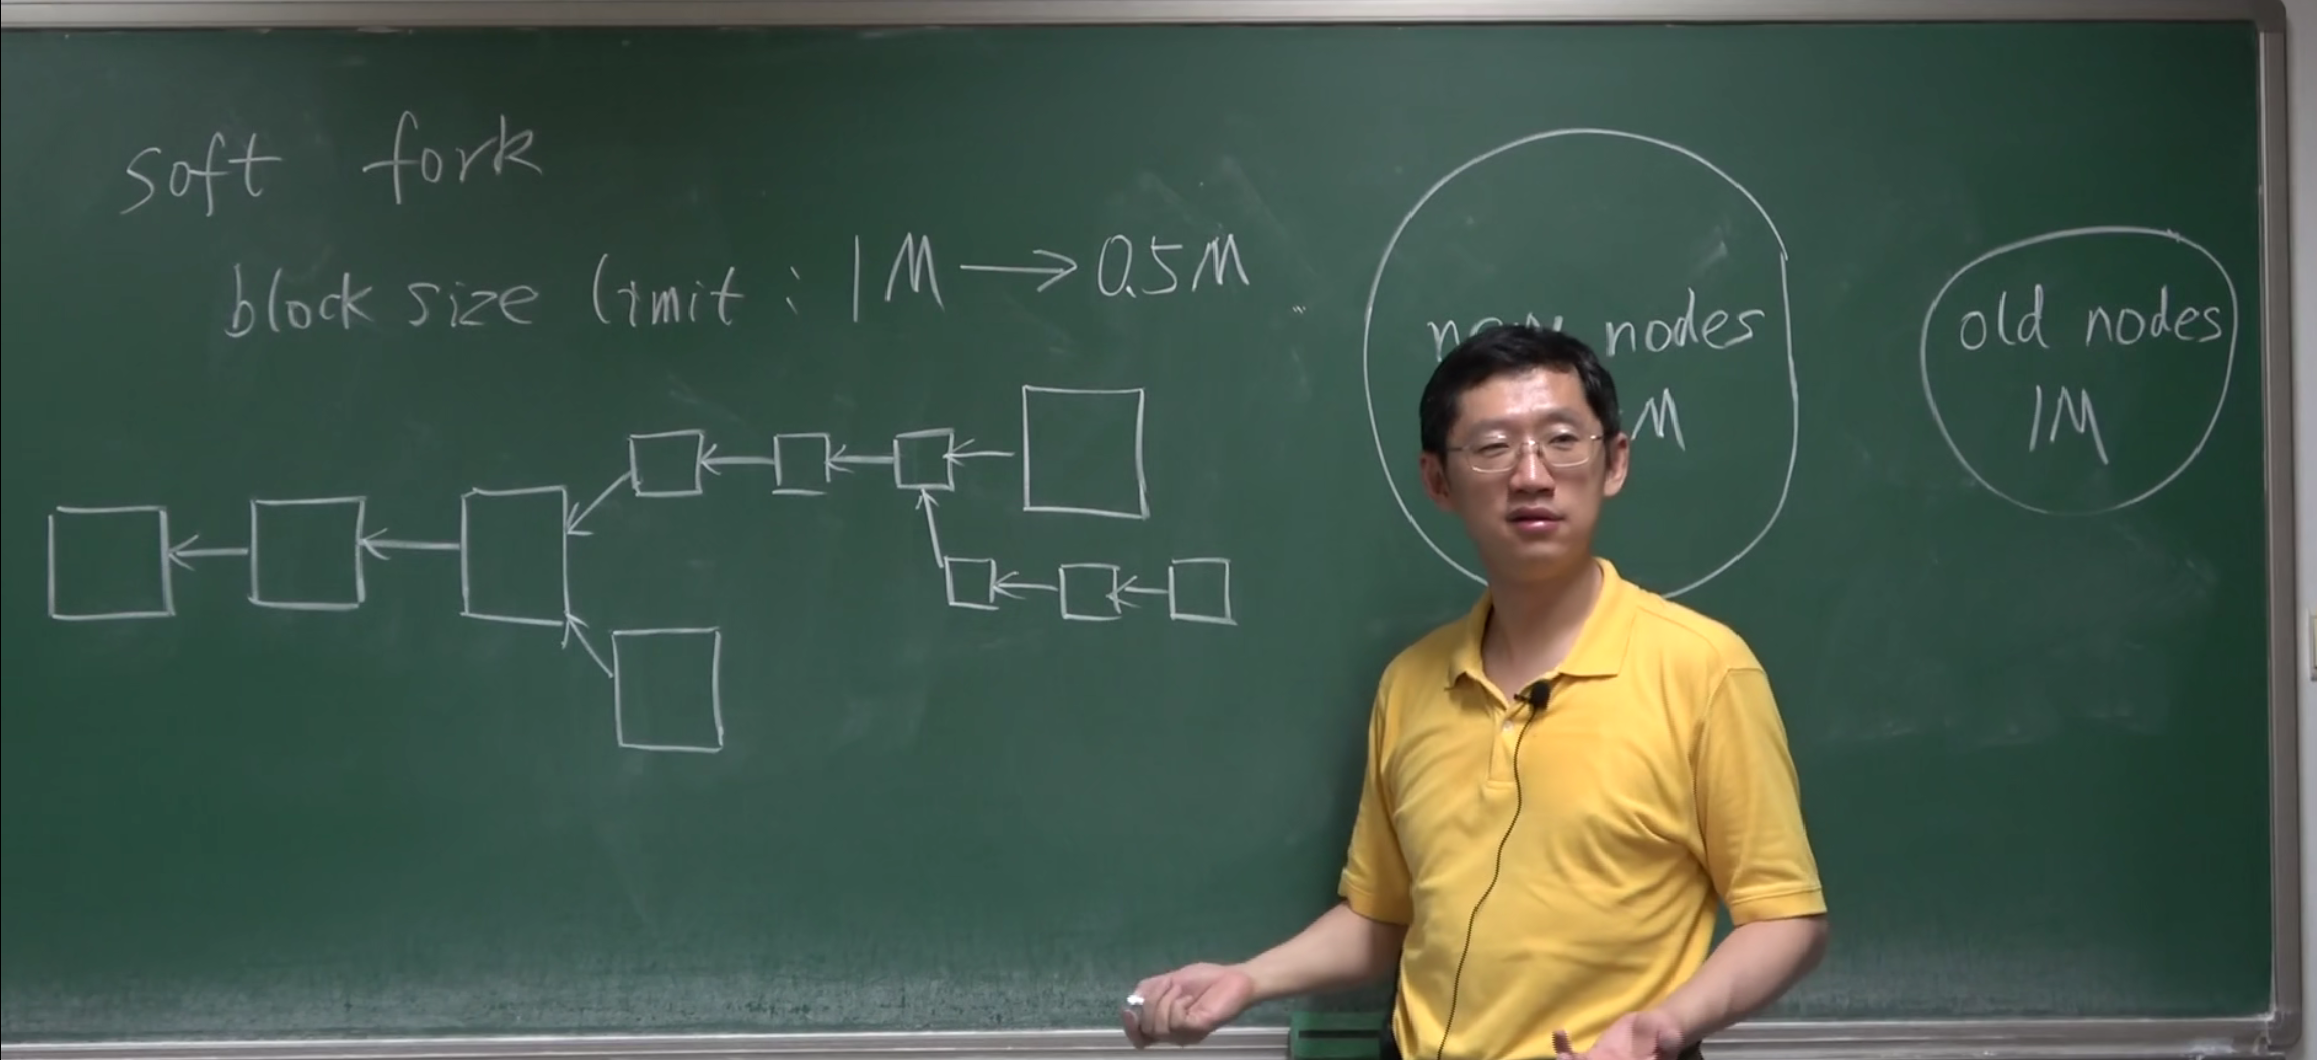 soft fork
block size limit : 1M → 0.5M
nodes
M
old nodes
1M